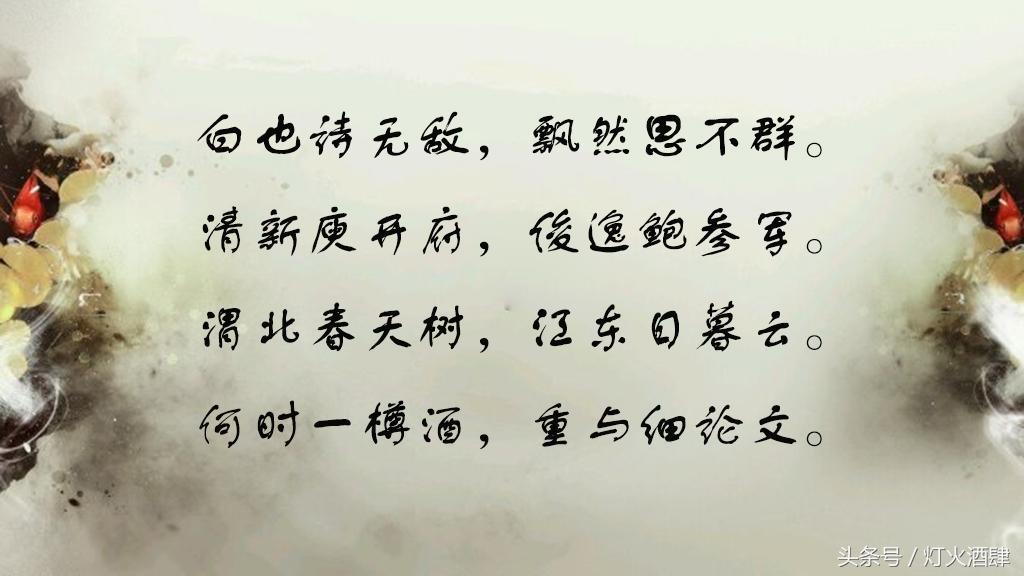 白也诗无敌，飘然思不群。
清新庾开府，俊逸鲍参军。
渭北春天树，江东日暮云。
何时一樽酒，重与细论文。
头条号 / 灯火酒肆